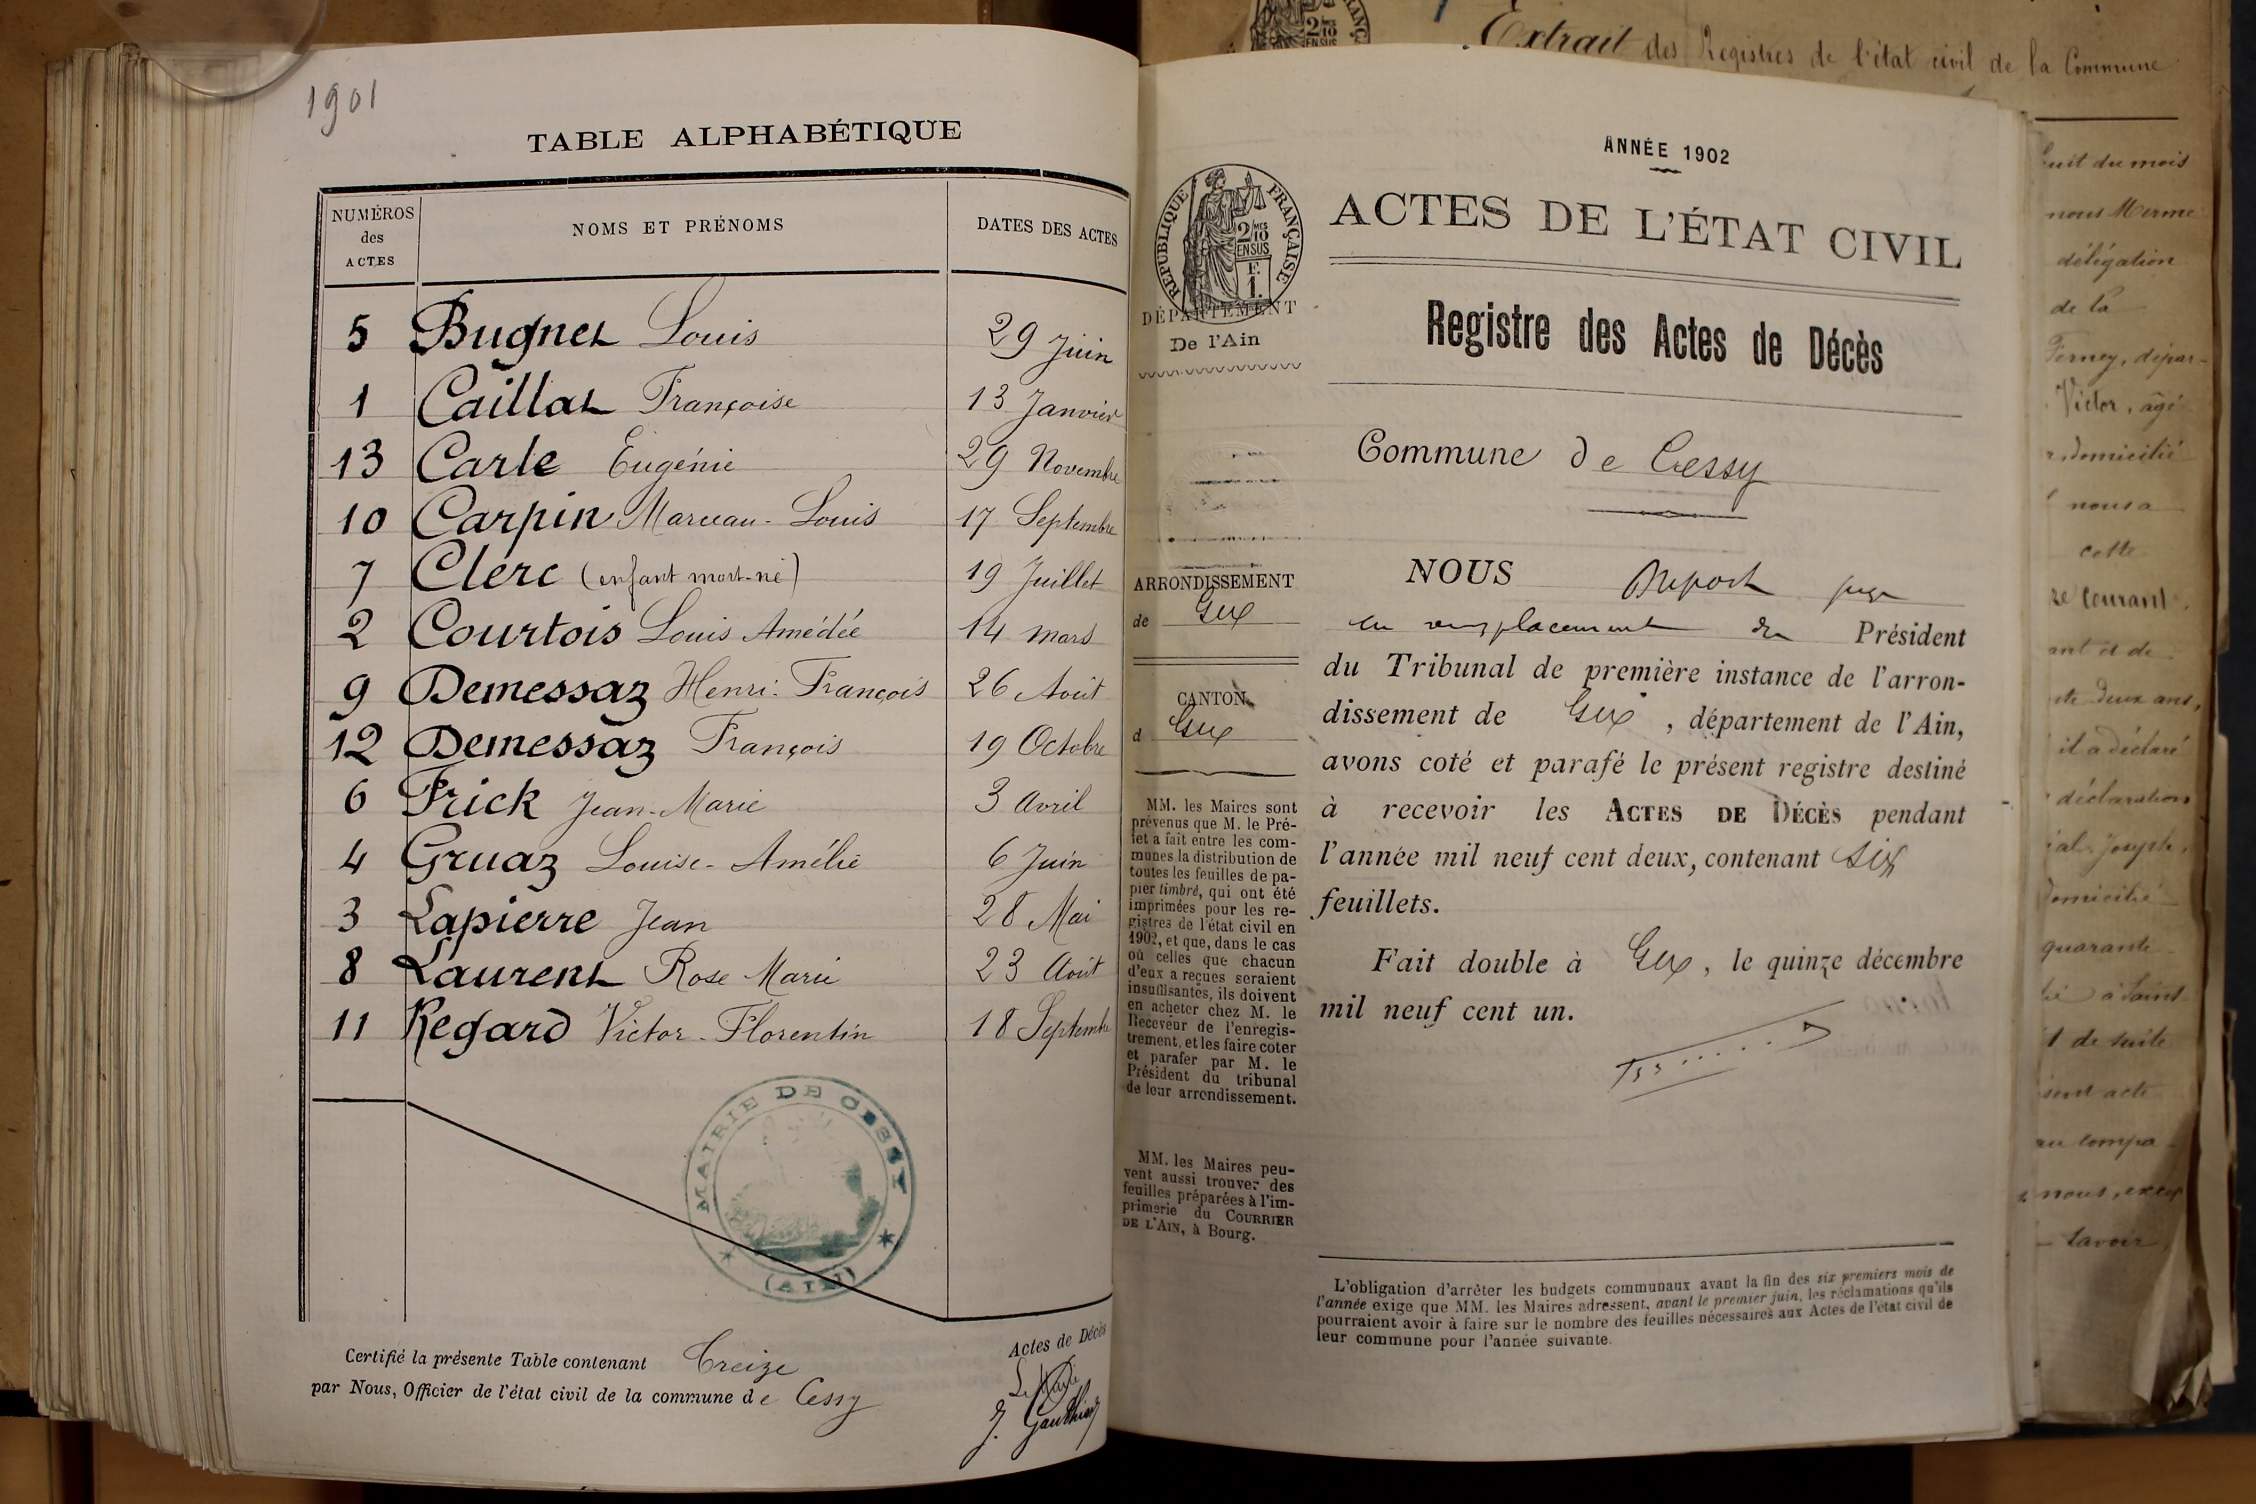 1901
TABLE ALPHABÉTIQUE
NUMÉROS des ACTES NOMS ET PRÉNOMS DATES DES ACTES
5 Bugnet Louis 29 Juin
1 Caillat Françoise 13 Janvier
13 Carle Eugénie 29 Novembre
10 Carpin Marceau-Louis 17 Septembre
7 Clerc (enfant mort-né) 19 Juillet
2 Courtois Louis Amédée 14 mars
9 Demessaz Henri-François 26 Août
12 Demessaz François 19 Octobre
6 Frick Jean-Marie 3 Avril
4 Gruaz Louise-Amélie 6 Juin
3 Lapierre Jean 28 Mai
8 Laurent Rose Marie 23 Août
11 Regard Victor-Florentin 18 Septembre
MAIRIE DE CESSY
(AIN)
Certifié la présente Table contenant Treize Actes de Décès
par Nous, Officier de l'état civil de la commune de Cessy
Le Maire
J. Gauthier
RÉPUBLIQUE FRANÇAISE
2 MES
10
EN SUS
F.
1.
DÉPARTEMENT
De l'Ain
ARRONDISSEMENT
de Gex
CANTON
d Gex
MM. les Maires sont
prévenus que M. le Pré-
fet a fait entre les com-
munes la distribution de
toutes les feuilles de pa-
pier timbré, qui ont été
imprimées pour les re-
gistres de l'état civil en
1902, et que, dans le cas
où celles que chacun
d'eux a reçues seraient
insuffisantes, ils doivent
en acheter chez M. le
Receveur de l'enregis-
trement, et les faire coter
et parafer par M. le
Président du tribunal
de leur arrondissement.
MM. les Maires peu-
vent aussi trouver des
feuilles préparées à l'im-
primerie du COURRIER
DE L'AIN, à Bourg.
ANNÉE 1902
ACTES DE L'ÉTAT CIVIL
Registre des Actes de Décès
Commune de Cessy
NOUS juge
en remplacement du Président
du Tribunal de première instance de l'arron-
dissement de Gex, département de l'Ain,
avons coté et parafé le présent registre destiné
à recevoir les ACTES DE DÉCÈS pendant
l'année mil neuf cent deux, contenant six
feuillets.
Fait double à Gex, le quinze décembre
mil neuf cent un.
L'obligation d'arrêter les budgets communaux avant la fin des six premiers mois de
l'année exige que MM. les Maires adressent, avant le premier juin, les réclamations qu'ils
pourraient avoir à faire sur le nombre des feuilles nécessaires aux Actes de l'état civil de
leur commune pour l'année suivante.
Extrait des Registres de l'état civil de la Commune
du mois
nous
délégation
de la
Ferney, dépar-
Victor, âgé
domicilié
nous a
cette
courant
et de
deux ans,
il a déclaré
déclaration
Joseph,
domicilié
quarante
à Saint
de suite
acte
nous,
savoir